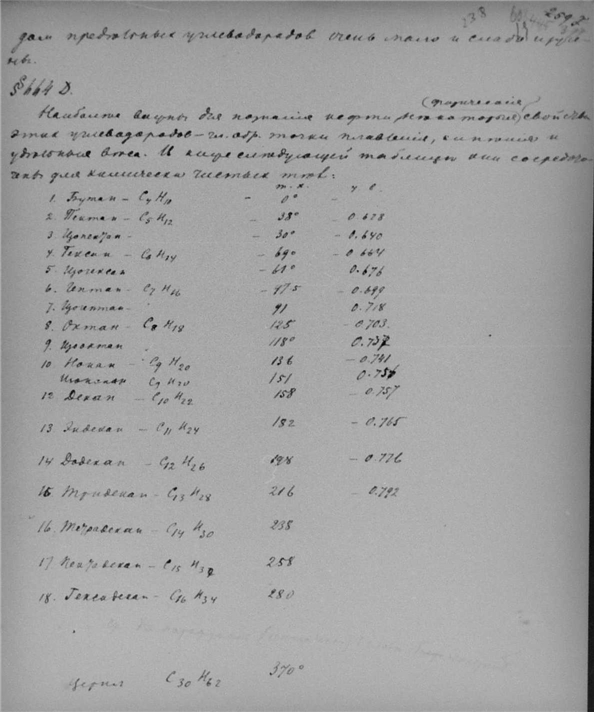 238 259
дом предельных углеводородов очень мало и слабо изуче-
ны.
§ 664 D.
(физические)
Наиболее важны для познания нефти некоторые свойства
этих углеводородов – гл. обр. точки плавления, кипения и
удельные веса. И ниже следующей таблице они сосредото-
чены для химически чистых тел:
т. к. у. в.
1. Бутан – C4H10 – 0°
2. Пентан – C5H12 – 38° – 0.628
3. Изопентан – – 30° – 0.640
4. Гексан – C6H14 – 69° – 0.664
5. Изогексан – 61° – 0.676
6. Гептан – C7H16 – 97.5 – 0.699
7. Изогептан – 91 0.718
8. Октан – C8H18 125 – 0.703.
9. Изооктан 118° 0.757
10. Нонан – C9H20 136 – 0.741
Изононан C9H20 151 0.756
12. Декан – C10H22 158 – 0.757
13. Эндекан – C11H24 182 – 0.765
14. Додекан – C12H26 198 – 0.776
15. Тридекан – C13H28 216 – 0.792
16. Тетрадекан – C14H30 238
17. Пентадекан – C15H32 258
18. Гексадекан – C16H34 280
C30H62 370°